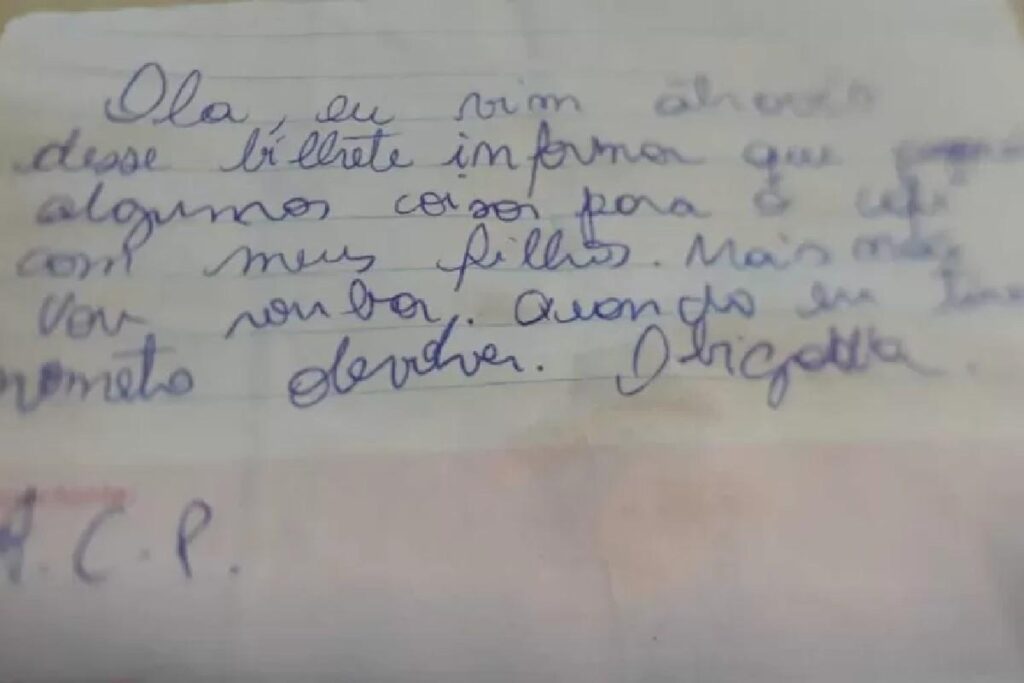 Ola, eu vim através
desse bilhete informar que
algumas coisas para o café
com meus filhos. Mais não
vou roubar. Quando eu
prometo devolver. Obrigada.
A.C.P.